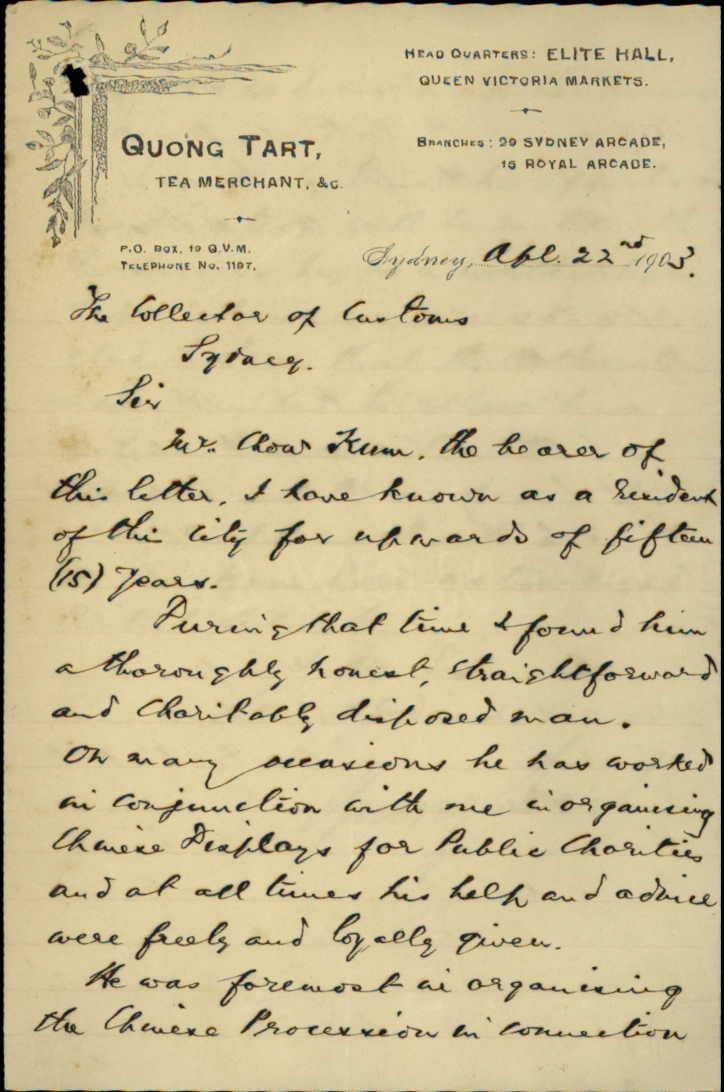 HEAD QUARTERS: ELITE HALL,
QUEEN VICTORIA MARKETS.
QUONG TART,
TEA MERCHANT, &c.
BRANCHES: 29 SYDNEY ARCADE,
15 ROYAL ARCADE.
P.O. BOX. 19 Q.V.M.
TELEPHONE No. 1197.
Sydney, Apl. 22nd 1903.
The Collector of Customs
Sydney.
Sir
Mr. Chow Kum, the bearer of
this letter, I have known as a resident
of this city for upwards of fifteen
(15) years.
During that time I found him
a thoroughly honest, straightforward
and charitably disposed man.
On many occasions he has worked
in conjunction with me in organising
Chinese Displays for Public Charities
and at all times his help and advice
were freely and loyally given.
He was foremost in organising
the Chinese Procession in connection